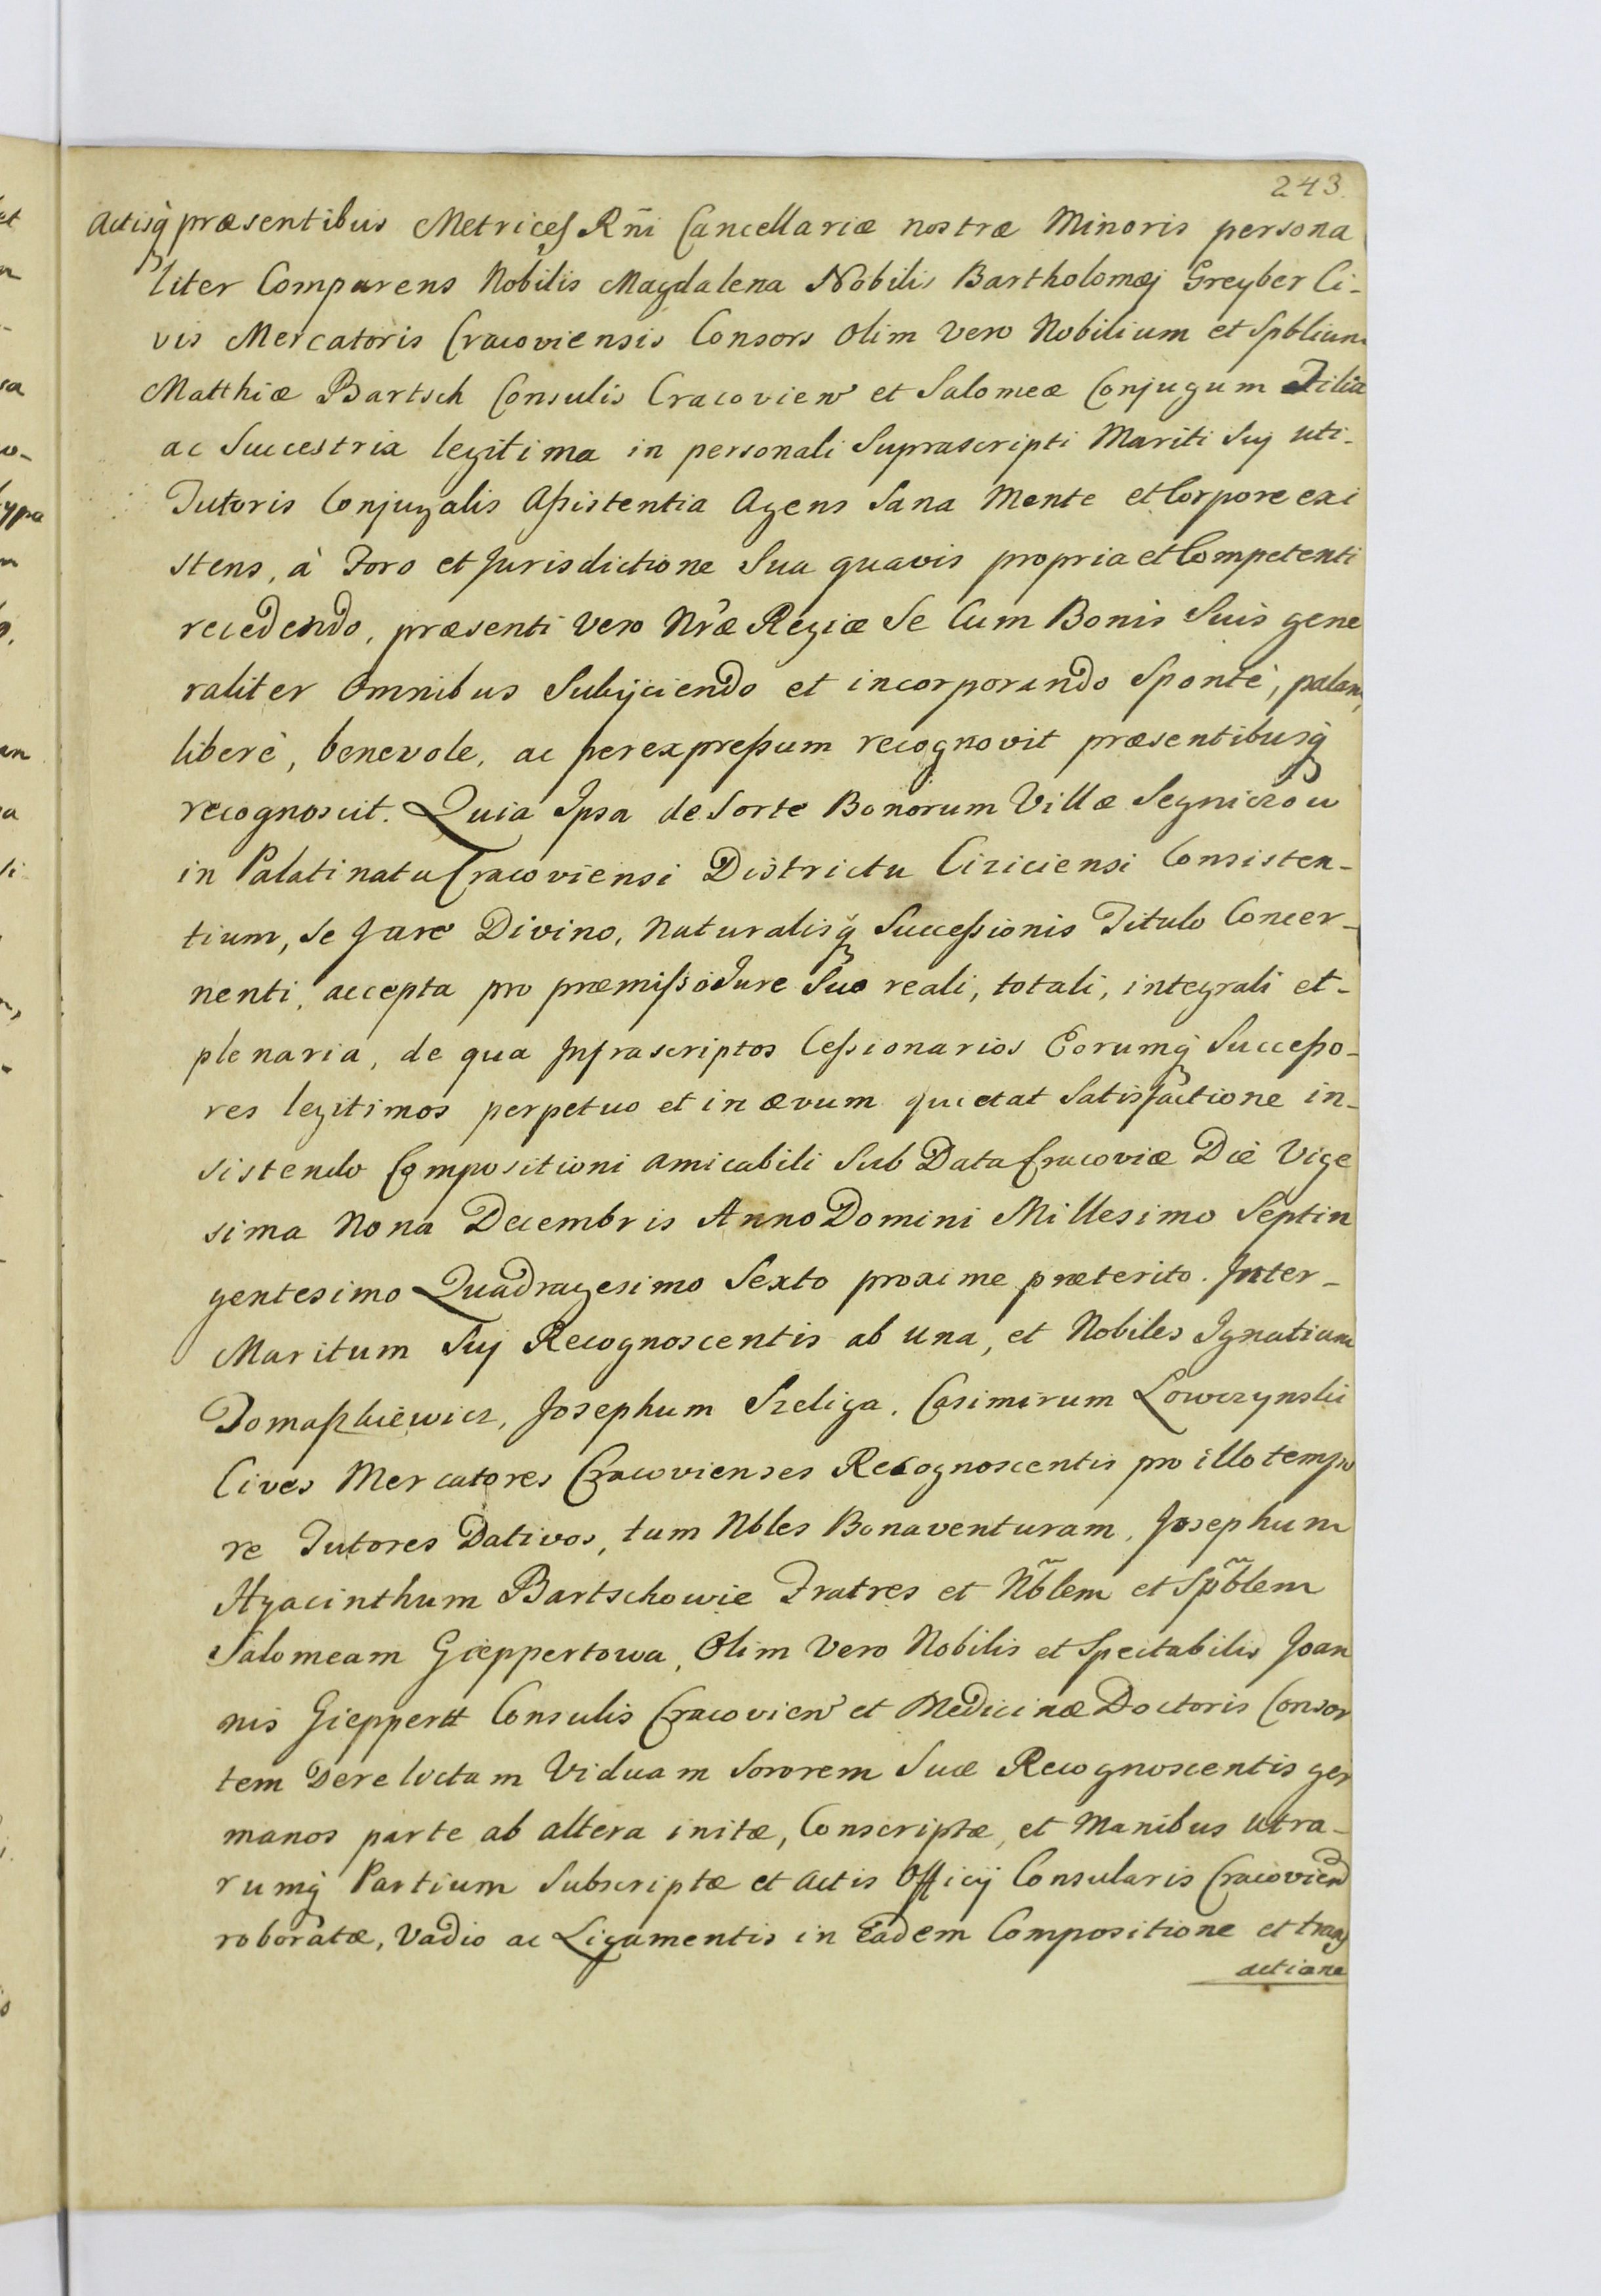 243.
Actisq̀ præsentibus Metrices Rñi Cancellariæ nostræ Minoris persona
liter Comparens Nobilis Magdalena Nobilis Bartholomæj Greyber Ci-
vis Mercatoris Cracoviensis Consors Olim Vero Nobilium et Spblium
Matthiæ Bartsch Consulis Cracovien̉ et Salomeæ Conjugum Filia
ac Succestrix legitima in personali Suprascripti Mariti Suj uti-
Tutoris Conjugalis Aßistentia Agens Sana Mente et Corpore exi
stens, à Foro et Jurisdictione Sua quavis propria et Competenti
recedendo, præsenti Vero Nræ Regiæ Se Cum Bonis Suis gene
raliter Omnibus Subijciendo et incorporando Spontè, palam,
liberè, benevole, ac per expreßum recognovit præsentibusq̀
recognoscit. Quia Ipsa de Sorte Bonorum Villæ Segniczow
in Palatinatu Cracoviensi Districtu Ciriciensi Consisten-
tium, Se Jure Divino, Naturalisq̀ Succeßionis Titulo Concer-
nenti, accepta pro præmißo Jure Suo reali, totali, integrali et-
plenaria, de qua Infrascriptos Ceßionarios Eorumq̀ Succeßo-
res legitimos perpetuo et in ævum quietat Satisfactione in-
sistendo Compositioni amicabili Sub Data Cracoviæ Die Vige
sima Nona Decembris Anno Domini Millesimo Septin
gentesimo Quadragesimo Sexto proxime præterito. Inter-
Maritum Suj Recognoscentis ab una, et Nobiles Ignatium
Tomaßkiewicz, Josephum Szeliga, Casimirum Lowczynski
Cives Mercatores Cracovienses Recognoscentis pro illo tempo
re Tutores Dativos, tum Nbles Bonaventuram, Josephum
Hyacinthum Bartschowie Fratres et Nb̃lem et Spb̃lem
Salomeam Gieppertowa, Olim Vero Nobilis et Spectabilis Joan
nis Gieppertt Consulis Cracovien̉ et Medicinæ Doctoris Consor
tem Derelictam Viduam Sororem Suæ Recognoscentis ger
manos parte ab altera initæ, Conscriptæ, et Manibus Utra-
rumq̀ Partium Subscriptæ et Actis Officij Consularis Cracovien̉
roboratæ, Vadio ac Ligamentis in Eadem Compositione et trans
actione